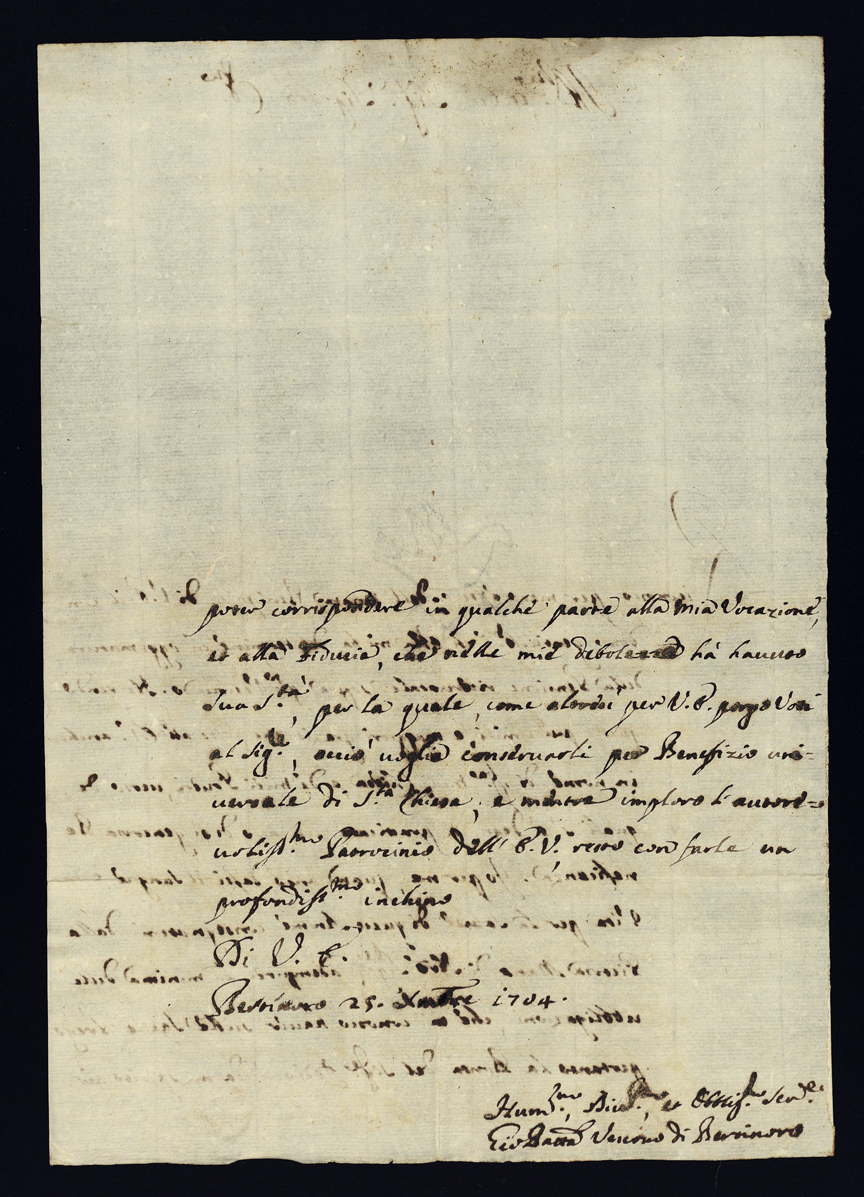 poter corrispondere in qualche parte alla mia Vocazione,
et alla Fiducia, che nelle mie debolezze há hauuto
Sua S.tá, per la quale, come altresi per V. E. porgo Voti
al Sig.re, acció voglia conseruarli per Benefizio uni=
uersale di S.ta Chiesa; e mentre imploro l'autore=
uoliss.mo Patrocinio dell' E. V. resto con farle un
profondiss.mo inchino
Di V. E.
Bertinoro 25. Xmbre 1704.
Hum.mo, Diu.mo, et Obblig.mo Ser.re
Gio Batta Vescouo di Bertinoro